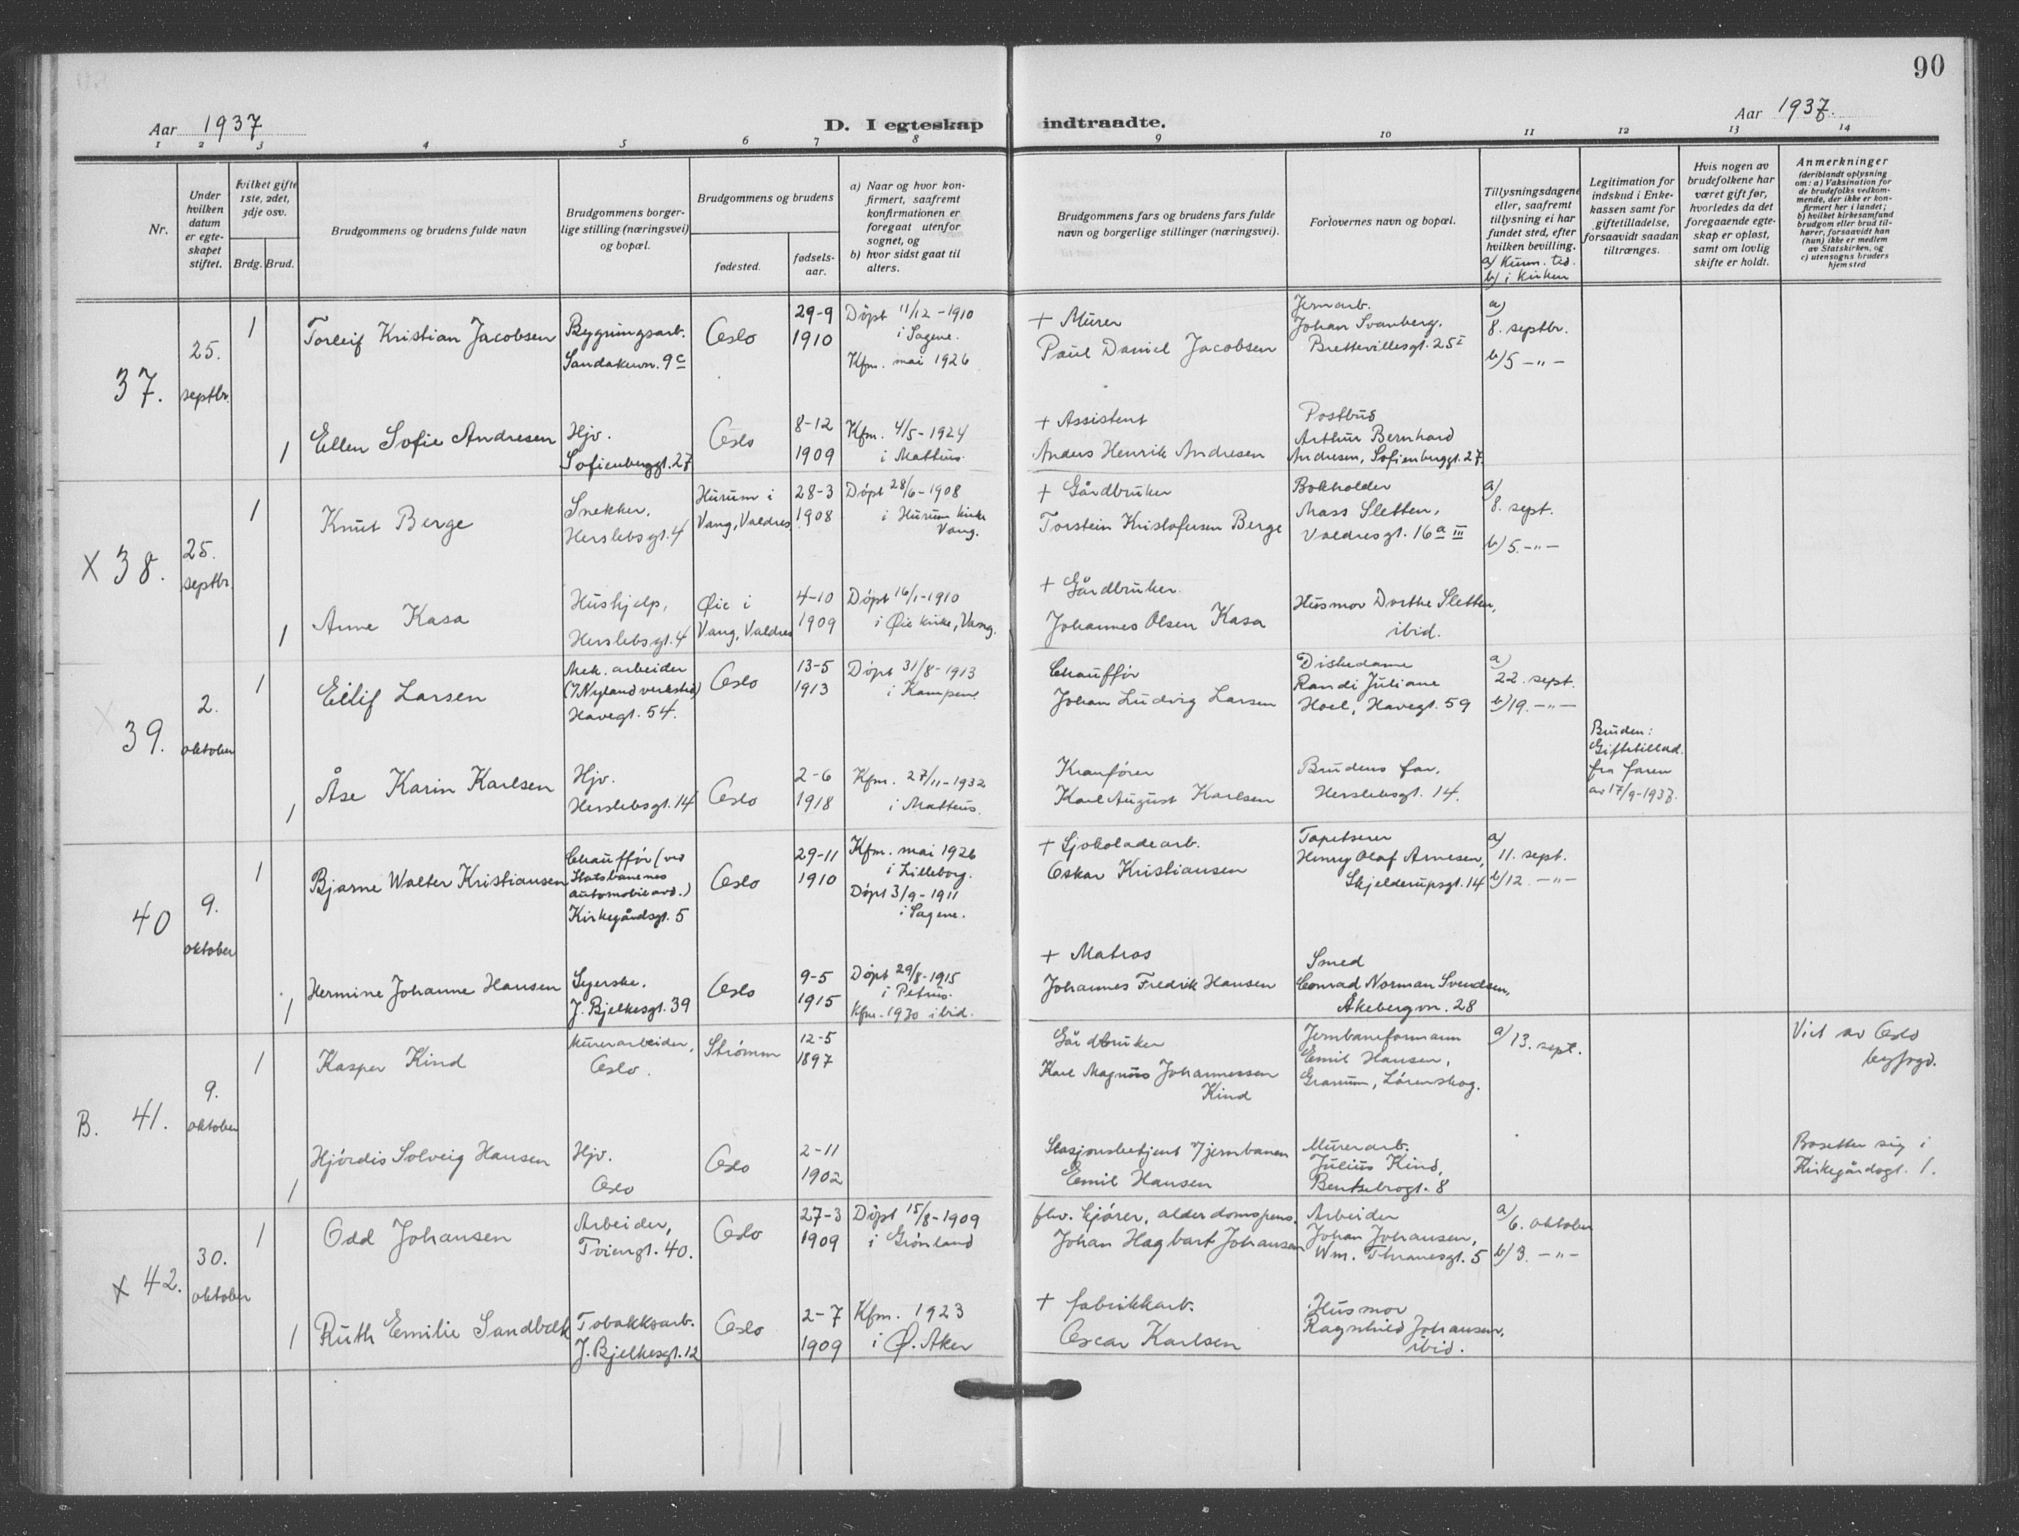 90
Aar 1937
D. I egteskap indtraadte.
Aar 1937.
1 2 3 4 5 6 7 8 9 10 11 12 13 14
Nr.
Under hvilken datum er egteskapet stiftet.
hvilket gifte 1ste, 2det, 3dje osv.
Brdg. Brud.
Brudgommens og brudens fulde navn
Brudgommens borgerlige stilling (næringsvei) og bopæl.
Brudgommens og brudens
fødested.
fødselsaar.
a) Naar og hvor konfirmert, saafremt konfirmationen er foregaat utenfor sognet, og
b) hvor sidst gaat til alters.
Brudgommens fars og brudens fars fulde navn og borgerlige stillinger (næringsvei).
Forlovernes navn og bopæl.
Tillysningsdagene eller, saafremt tillysning ei har fundet sted, efter hvilken bevilling.
a) Kunn. tid.
b) i kirken
Legitimation for indskud i Enkekassen samt for giftetilladelse, forsaavidt saadan tiltrænges.
Hvis nogen av brudefolkene har været gift før, hvorledes da det foregaaende egteskap er opløst, samt om lovlig skifte er holdt.
Anmerkninger
(deriblandt oplysning om: a) Vaksination for de brudefolks vedkommende, der ikke er konfirmert her i landet; b) hvilket kirkesamfund brudgom eller brud tilhører, forsaavidt han (hun) ikke er medlem av Statskirken, og c) utensogns bruders hjemsted
37.
25. septbr.
1
Torleif Kristian Jacobsen
Bygningsarb.
Sandakervn. 9c
Oslo
29-9
1910
Døpt 11/12-1910
i Sagene.
Kfm. mai 1926
+ Murer
Paul Daniel Jacobsen
Jernarb.
Johan Svanberg,
Brettevillesgt. 25 I
a)
8. septbr.
b) 5 -"-
1
Ellen Sofie Andresen
Hjv.
Sofienberggt. 27
Oslo
8-12
1909
Kfm. 4/5-1924
i Matteus.
+ Assistent
Anders Henrik Andresen
Postbud
Arthur Bernhard
Andresen, Sofienberggt. 27.
X 38.
25.
septbr.
1
Knut Berge
Snekker,
Herslebsgt. 4
Hurum i
Vang, Valdres
28-3
1908
Døpt 28/6-1908
i Hurum kirke
Vang.
+ Gårdbruker
Torstein Kristofersen Berge
Bokholder
Mass Sletten,
Valdresgt. 16 a III
a)
8. sept.
b) 5. -"-
1
Anne Kasa
Hushjelp,
Herslebsgt. 4
Øie i
Vang, Valdres
4-10
1909
Døpt 16/1-1910
i Øie kirke, Vang.
+ Gårdbruker.
Johannes Olsen Kasa
Husmor Dorthe Sletten,
ibid.
39.
2.
oktober
1
Eilif Larsen
Mek. arbeider
(v/Nyland verksted)
Havegt. 54.
Oslo
13-5
1913
Døpt 31/8-1913
i Kampen.
Chauffør
Johan Ludvig Larsen
Diskedame
Randi Juliane
Hoel, Havegt. 59
a)
22. sept.
b) 19. -"-
1
Åse Karin Karlsen
Hjv.
Herslebsgt. 14
Oslo
2-6
1918
Kfm. 27/11-1932
i Matteus.
Kranfører
Karl August Karlsen
Brudens far,
Herslebsgt. 14.
Bruden:
Giftetillad.
fra faren
av 17/9-1937.
40
9.
oktober
1
Bjarne Walter Kristiansen
Chauffør (ved
Statsbanenes
automobilavd.)
Kirkegårdsgt. 5
Oslo
29-11
1910
Kfm. mai 1926
i Lilleborg.
Døpt 3/9-1911
i Sagene.
+ Sjokoladearb.
Oskar Kristiansen
Tapetserer
Henry Olaf Arnesen,
Skjelderupsgt. 14
a)
11. sept.
b) 12. -"-
1
Hermine Johanne Hansen
Syerske.
J. Bjelkesgt. 39
Oslo
9-5
1915
Døpt 29/8-1915
i Petrus.
Kfm. 1930 ibid.
+ Matros
Johannes Fredrik Hansen
Smed
Conrad Norman Svendsen,
Åkebergvn. 28
B. 41.
9.
oktober
1
Kasper Kind
Murerarbeider,
Oslo.
Strømm
12-5
1897
Gårdbruker
Karl Magnus Johannessen
Kind
Jernbaneformann
Emil Hansen,
Granum, Lørenskog.
a) 13. sept.
Viet av Oslo
byfogd.
1
Hjørdis Solveig Hansen
Hjv.
Oslo
Oslo
2-11
1902
Stasjonsbetjent v/jernbanen
Emil Hansen
Murerarb.
Julius Kind,
Bentsebrogt. 8
Bosetter sig i
Kirkegårdsgt. 1.
x 42.
30.
oktober
1
Odd Johansen
Arbeider,
Tøiengt. 40.
Oslo
27-3
1909
Døpt 15/8-1909
i Grønland
fhv. kjører, alderdomspens.
Johan Hagbart Johansen
Arbeider
Johan Johansen,
Wm. Thranesgt. 5
a)
6. oktober
b) 3. -"-
1
Ruth Emilie Sandbæk
Tobakksarb.
J. Bjelkesgt. 12
Oslo
2-7
1909
Kfm. 1923
i Ø. Aker
+ fabrikkarb.
Oscar Karlsen
Husmor
Ragnhild Johansen,
ibid.